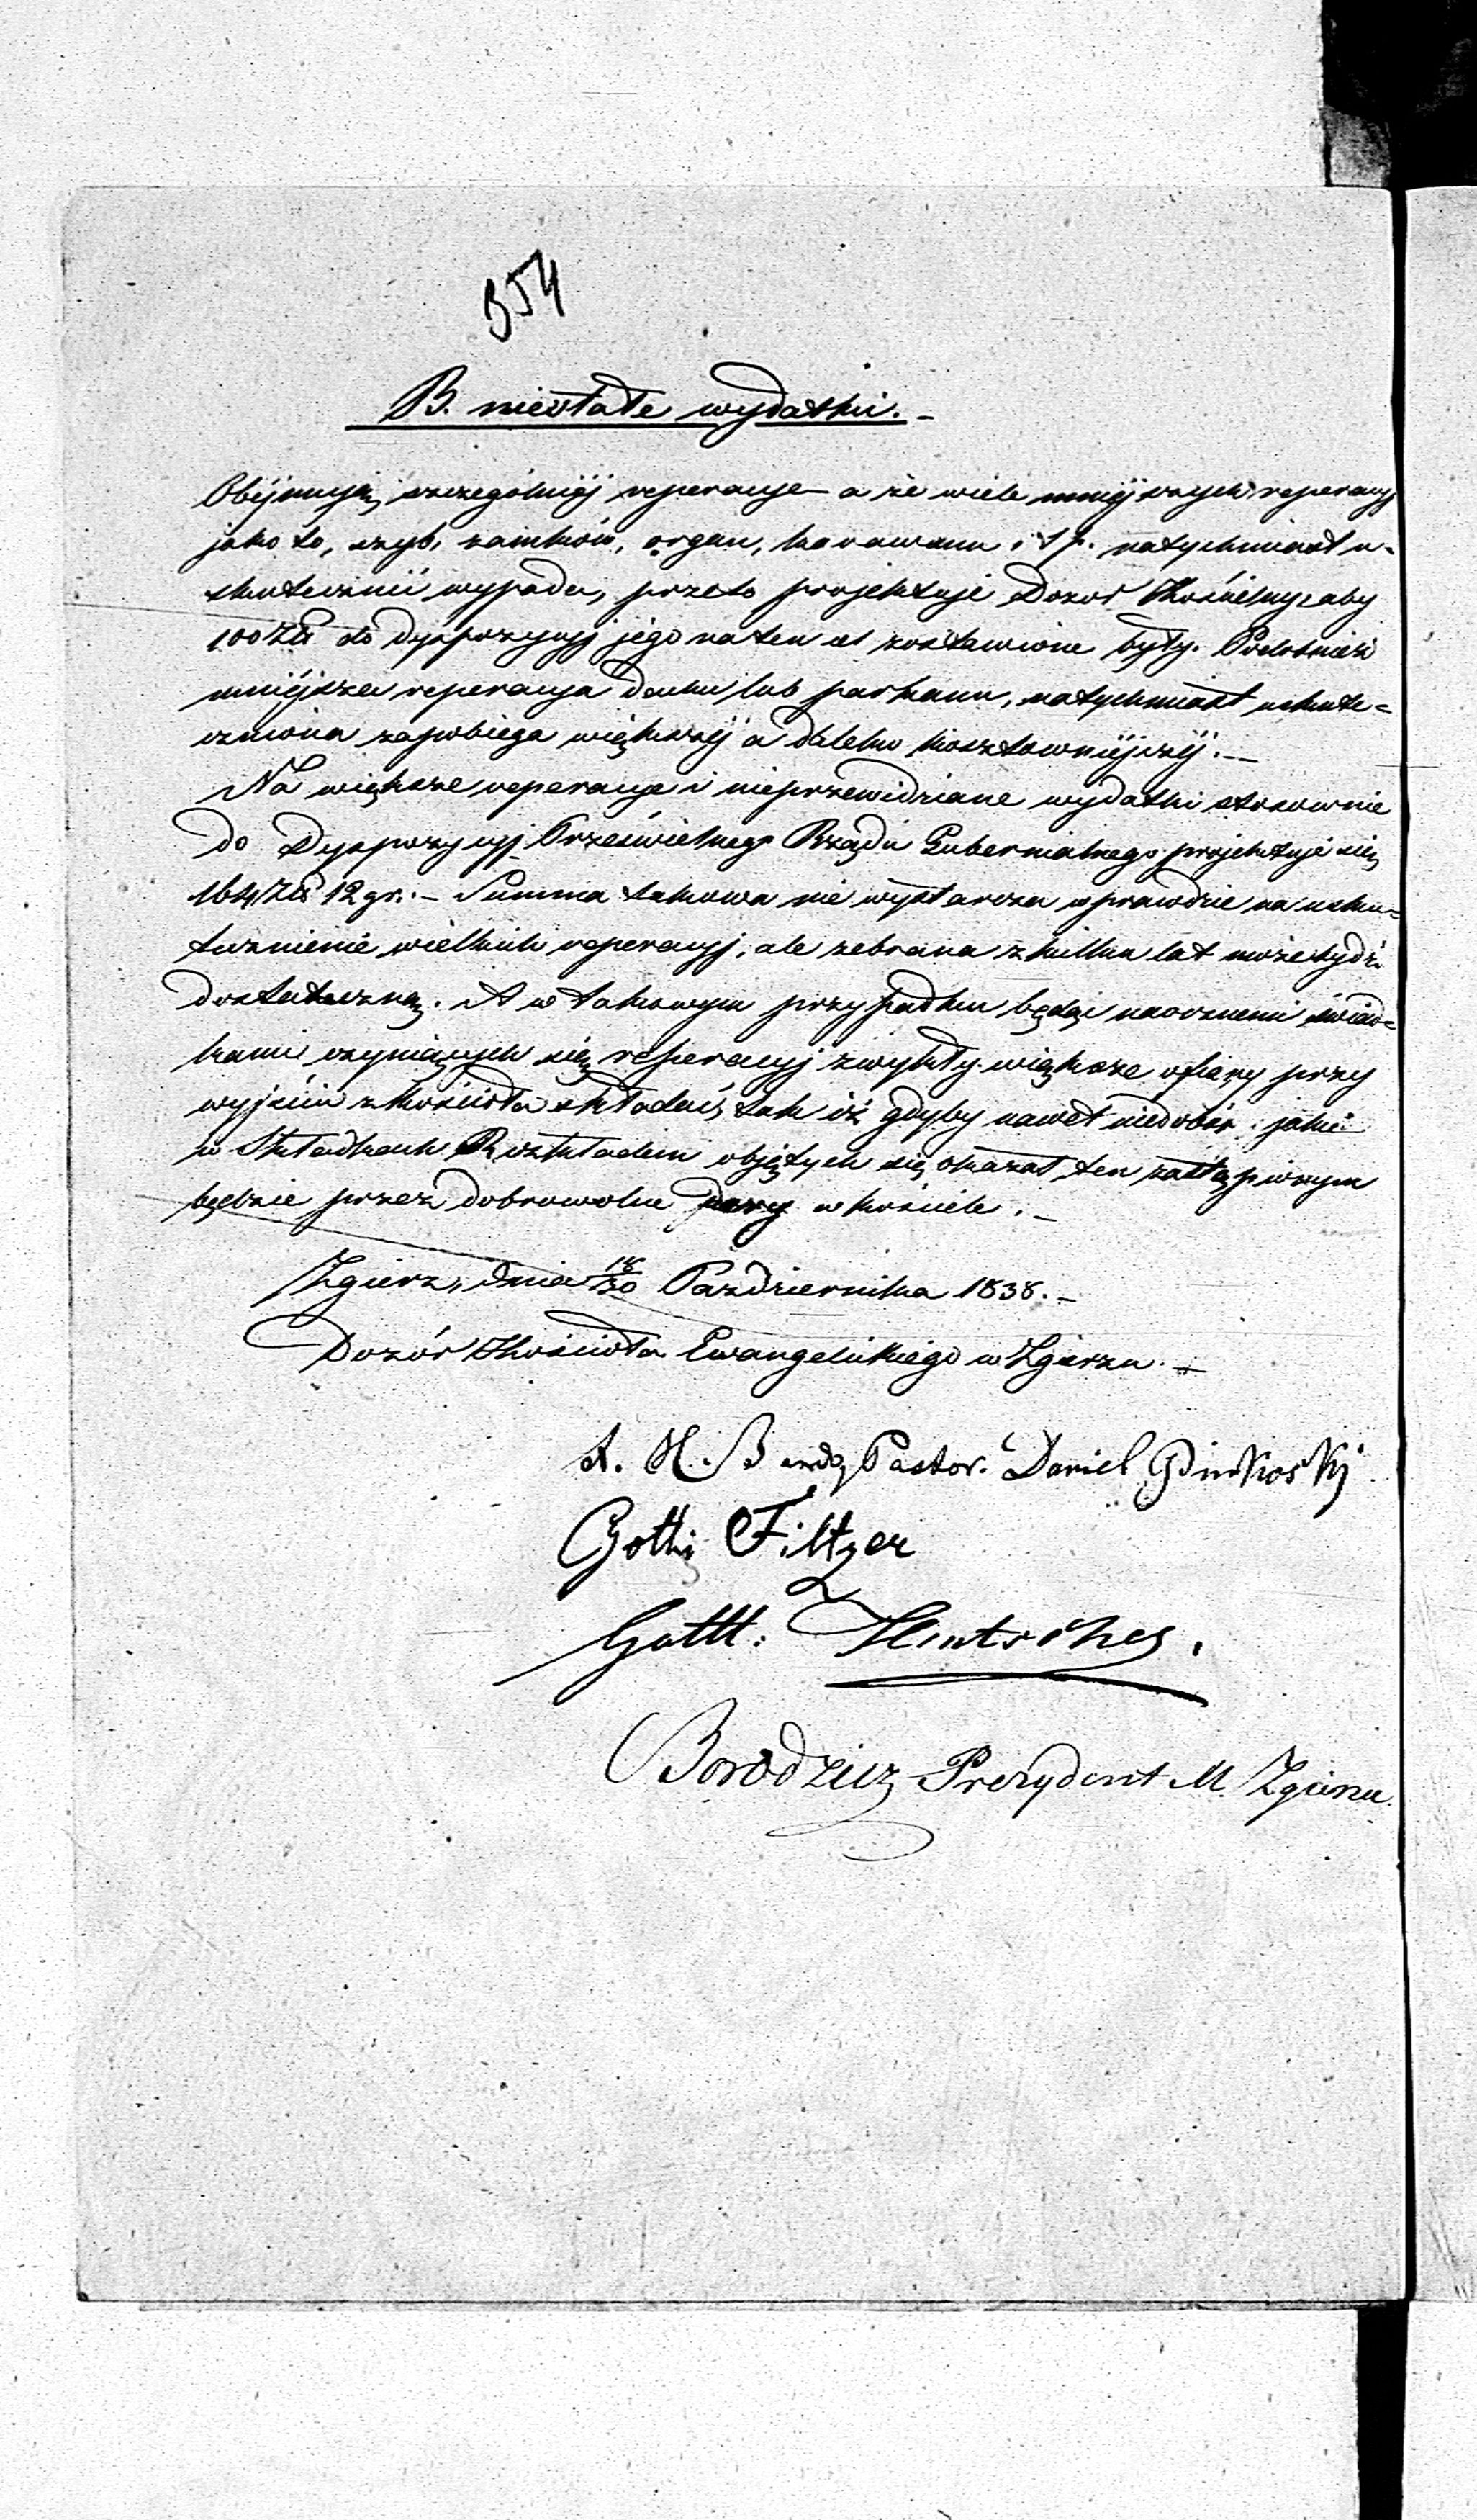 354
B. niestałe wydatki. -
Obéjmują szczególniéj reperacje - a że wiele mniéjszych reperacyj
jako to, szyb, zamków, organ, karawanu i t p. natychmiast u-
skutecznić wypada, przeto projektuje Dozór Kościelny, aby
100 Złt do dyspozycyj jego na ten cel zostawione były. Podobnież
mniéjsza reperacya dachu lub parkanu, natychmiast uskute=
czniona zapobiega większéj a daleko kosztowniéjszéj. -
Na większe reperacye i nieprzewidziane wydatki stosownie
do Dyspozycyj Prześwietnego Rządu Gubernialnego projektuje się
164 Złt 12 gr. - Summa takowa nie wystarcza wprawdzie na usku=
tecznienie wielkich reperacyj, ale zebrana z kilku lat może bydź
dostateczną. A w takowym przypadku będąc naocznemi świad=
kami czyniących się reperacyj zwykły większe ofiary przy
wyjściu z kościoła składać, tak iż gdyby nawet niedobór jaki
w Składkach Rozkładem objętych się okazał, ten zastąpionym
będzie przez dobrowolne dary w kościele. -
Zgierz, dnia 18/30 Października 1838. -
Dozór Kościoła Ewangelickiego w Zgierzu. -
A. H. Pastor. Daniel
Gotth Filtzer
Gottl.
Borodzicz Prezydent M. Zgierza